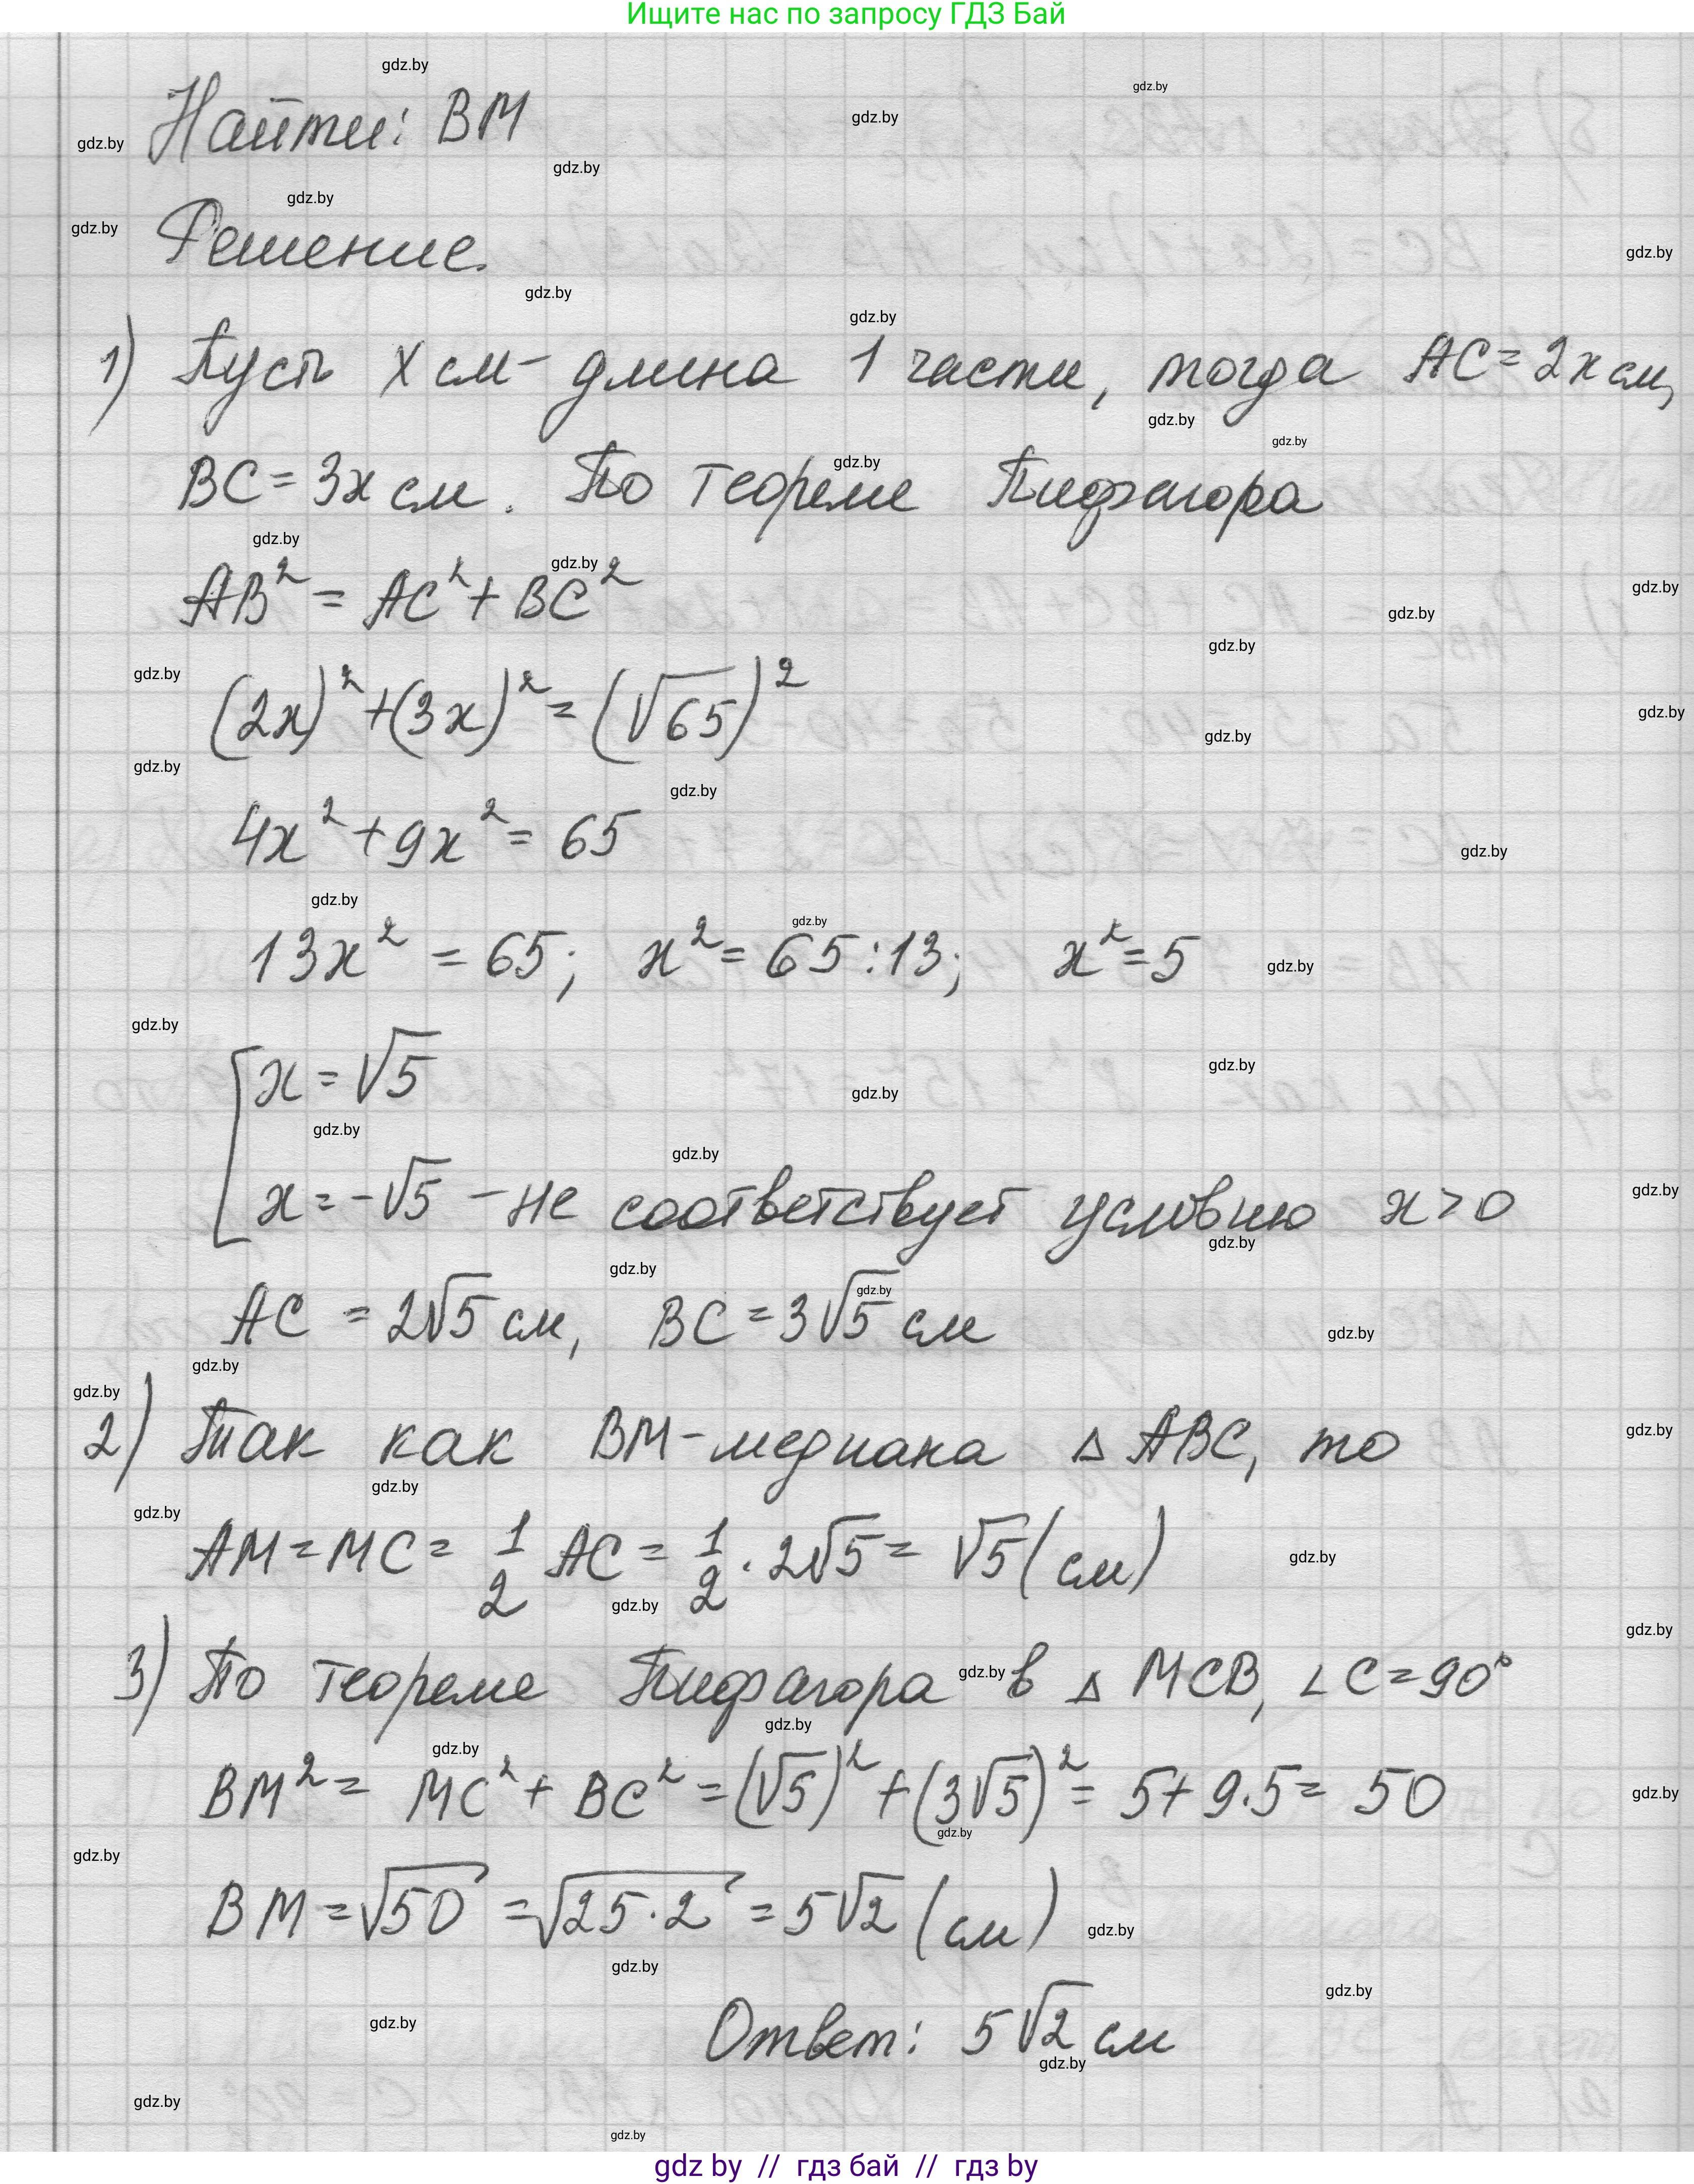 Ищите нас по запросу ГДЗ Бай
Найти: BM
Решение.
1) Пусть x см - длина 1 части, тогда AC = 2x см,
BC = 3x см. По теореме Пифагора
AB² = AC² + BC²
(2x)² + (3x)² = (√65)²
4x² + 9x² = 65
13x² = 65; x² = 65 : 13; x² = 5
[ x = √5
x = -√5 - не соответствует условию x > 0
AC = 2√5 см, BC = 3√5 см
2) Так как BM - медиана △ ABC, то
AM = MC = 1/2 AC = 1/2 · 2√5 = √5 (см)
3) По теореме Пифагора в △ MCB, ∠C = 90°
BM² = MC² + BC² = (√5)² + (3√5)² = 5 + 9·5 = 50
BM = √50 = √25·2 = 5√2 (см)
Ответ: 5√2 см
gdz by // гдз бай // гдз by